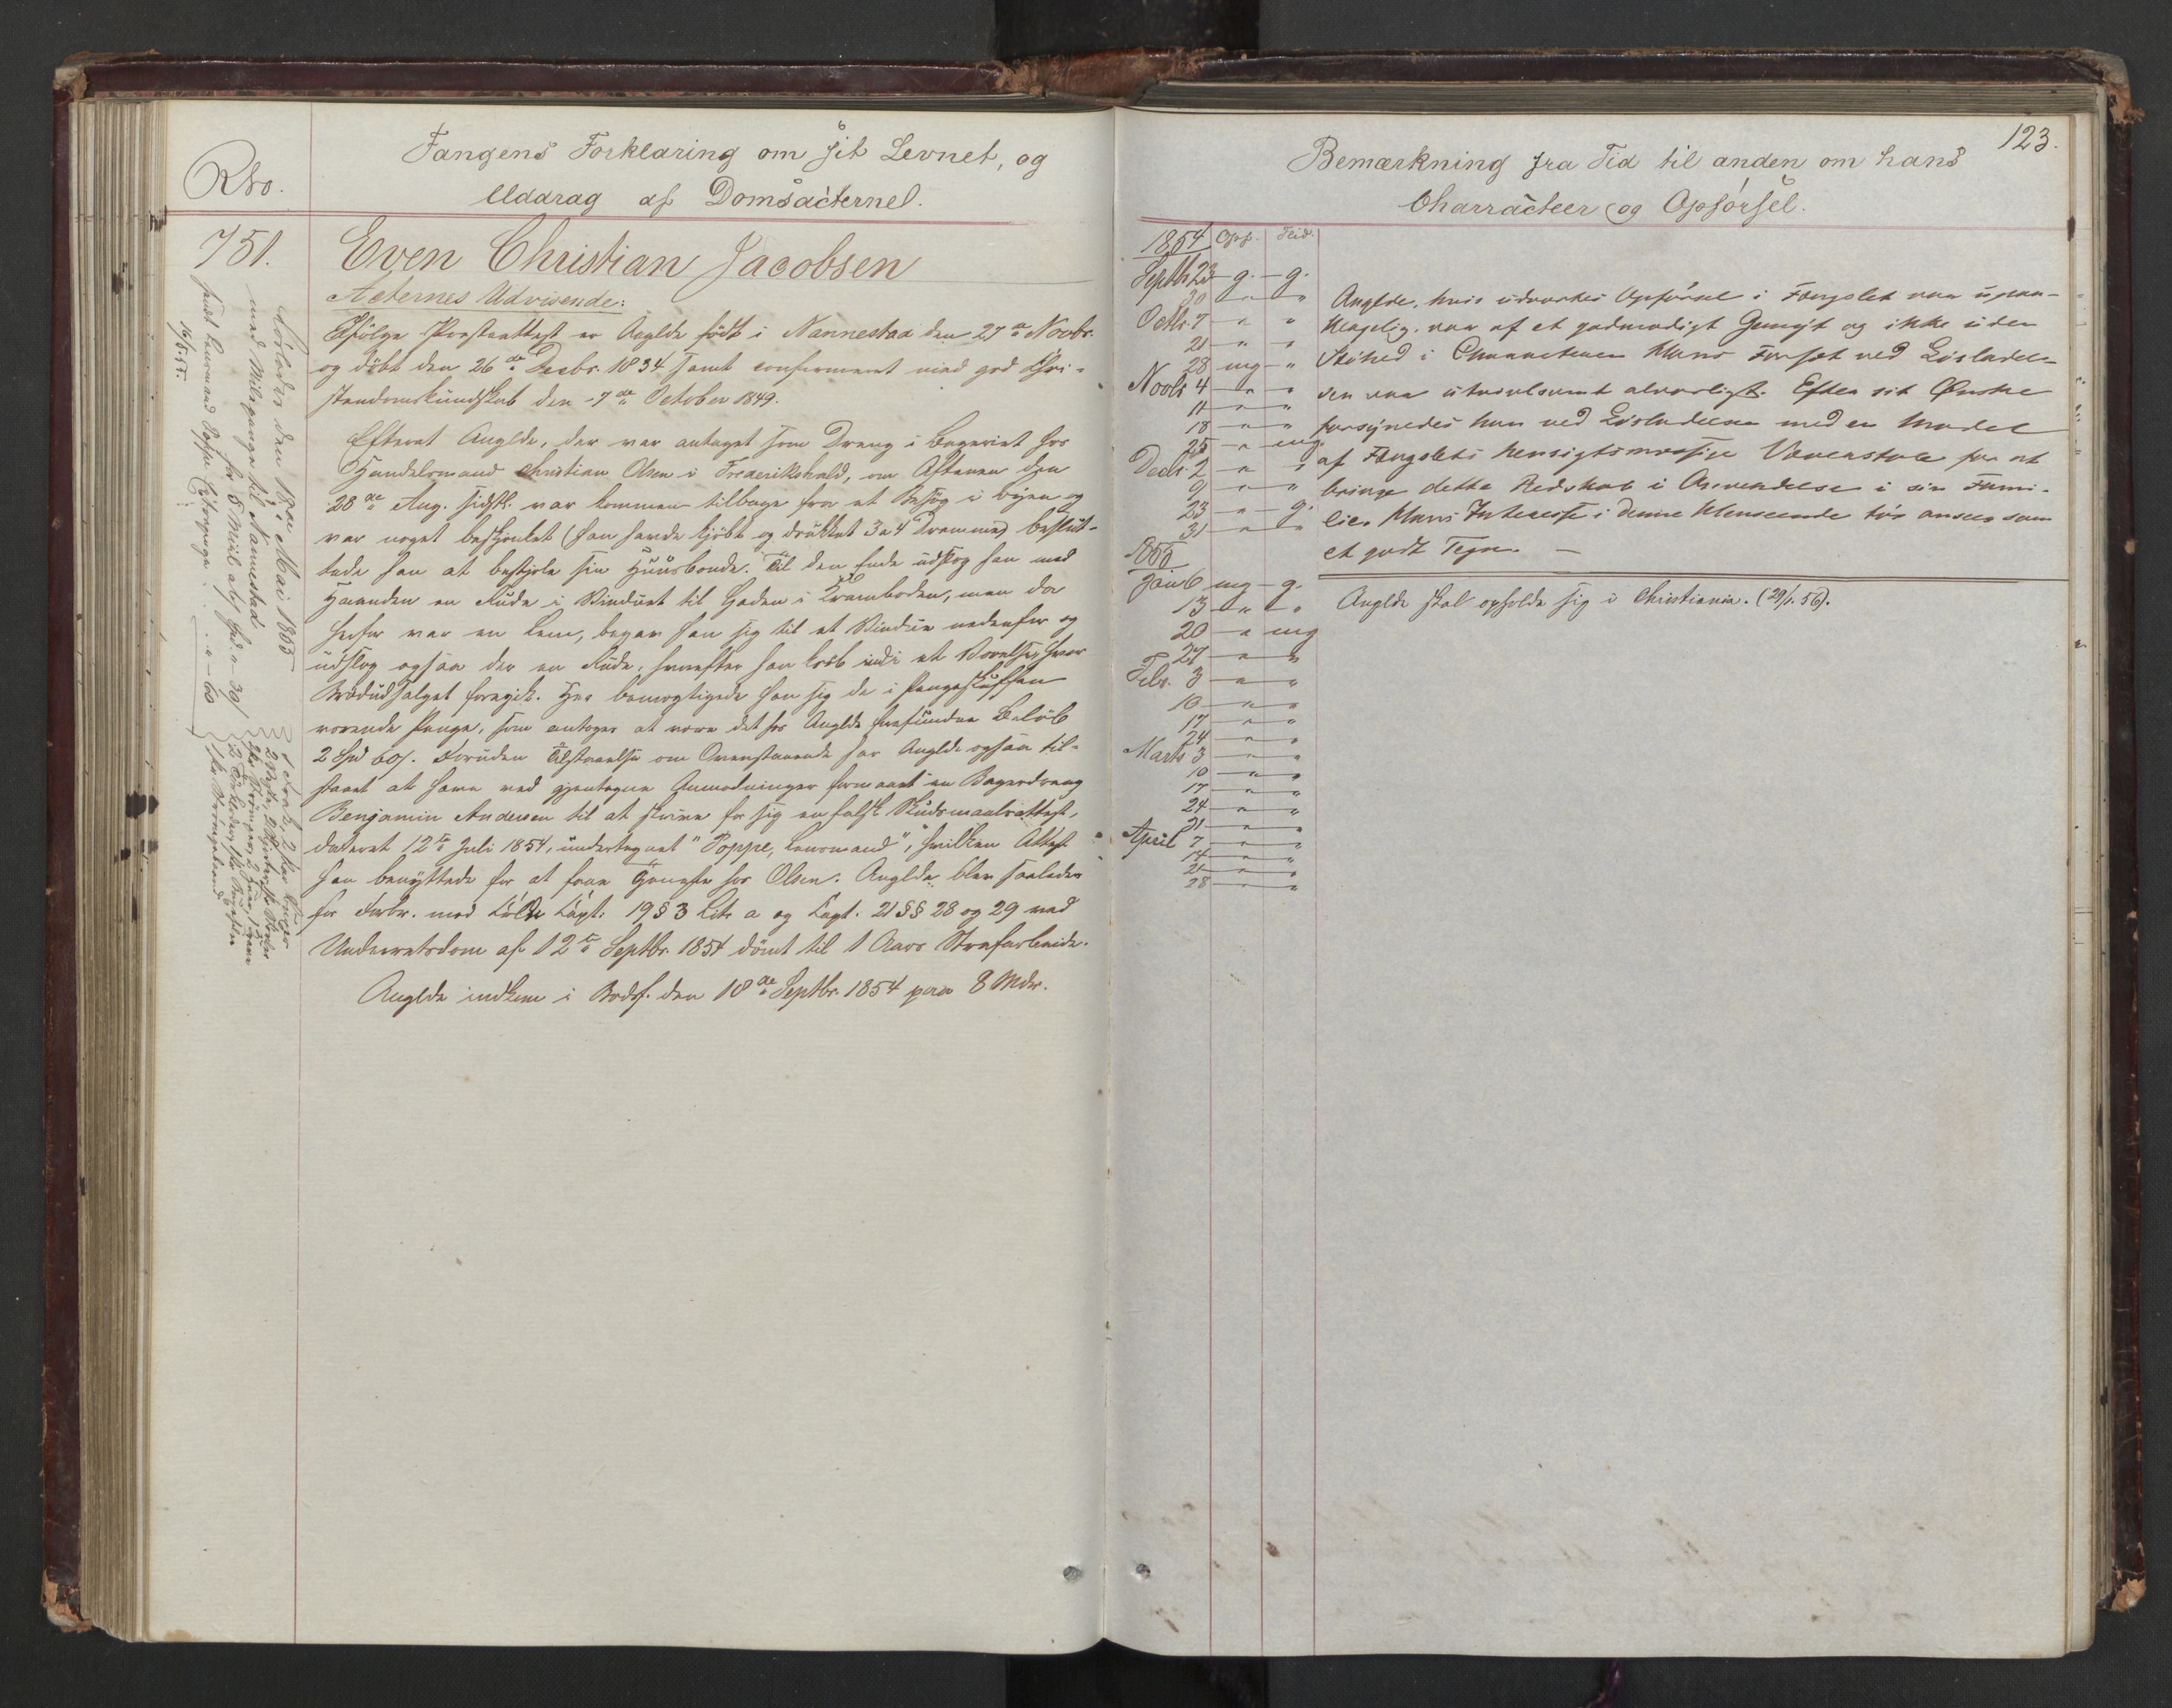 No.
Fangens Forklaring om sit Levnet, og
Uddrag af Domsacterne.
751.
Even Christian Jacobsen
Acternes Udvisende:
Ifölge Præsteattest er Angldr födt i Nannestad den 27de Novbr.
og döbt den 26de Decbr. 1834 samt confirmeret med god Chri-
stendomskundskab den 7de October 1849.
Efterat Angldr, der var antaget som Dreng i Bageriet hos
Handelsmand Christian Olsen i Frederikshald, om Aftenen den
28de Aug. sidstl. var kommen tilbage fra et Besög i Byen og
var noget beskjenket (han havde kjöbt og drukket 3 a 4 Dramme) beslut-
tede han at bestjele sin Huusbonde. Til den Ende udslog han med
Haanden en Rude i Vinduet til Gaden i Kramboden, men da
herfor var en Lem, begav han sig til et Vindue nedenfor og
udslog ogsaa der en Rude, hvorefter han kröb ind i et Værelse, hvor
Brödudsalget foregik. Her bemægtigede han sig de i Pengeskuffen
værende Penge, som antages at være det hos Angldr forefundne Belöb
2 Spd 60 s. Foruden Tilstaaelse om Ovenstaaende har Angldr ogsaa til-
staaet at have ved gjentagne Anmodninger formaaet en Bagerdreng
Benjamin Andersen til at skrive for sig en falsk Skudsmaalsattest,
dateret 12te Juli 1854, undertegnet "Poppe, Lensmand", hvilken Attest
han benyttede for at faae Tjeneste hos Olsen. Angldr blev saaledes
for Forbr. mod Lovens Capt. 19 § 3 Litr a og Capt. 21 §§ 28 og 29 ved
Underretsdom af 12te Septbr. 1854 dömt til 1 Aars Strafarbeide.
Angldr indkom i Bodsf. den 18de Septbr. 1854 paa 8 Mdr.
Lösladt den 18de Mai 1855
med Milepenge til Nannestad
for 5 Miil
sendt Lensmand Poppe
16/5 55.
123.
Bemærkning fra Tid til anden om hans
Charracteer og Opförsel.
1854 Opf. Flid.
Septbr 23 g. g.
30 " "
Octbr 7 " "
21 " "
28 mg "
Novbr 4 " "
11 " "
18 " "
25 " mg.
Decbr 2 " "
9 " "
23 " g.
31 " "
1855
Jan 6 mg g.
13 " "
20 " mg
27 " "
Febr. 3 " "
10 " "
17 " "
24 " "
Marts 3 " "
10 " "
17 " "
24 " "
31 " "
April 7 " "
14 " "
21 " "
28 " "
Angldr, hvis udvortes Opförsel i Fængslet var upaa-
klagelig, var af et godmodigt Gemyt og ikke uden
Stöhed i Characteren. Hans Forsæt ved Lösladel-
sen var utvivlsomt alvorligt. Efter sit Önske
forsynedes han ved Lösladelsen med en Model
af Fængslets hensigtsmæssige Væverstole for at
bringe dette Redskab i Anvendelse i sin Fami-
lie. Hans Interesse i denne Henseende tör ansees som
et godt Tegn. —
Angldr skal opholde sig i Christiania. (29/1. 56).